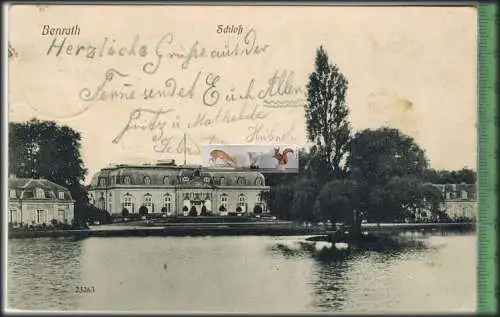 Benrath
Schloß
Herzliche Grüße aus der
Ferne sendet Euch Allen
Fritz u Mathilde
23263